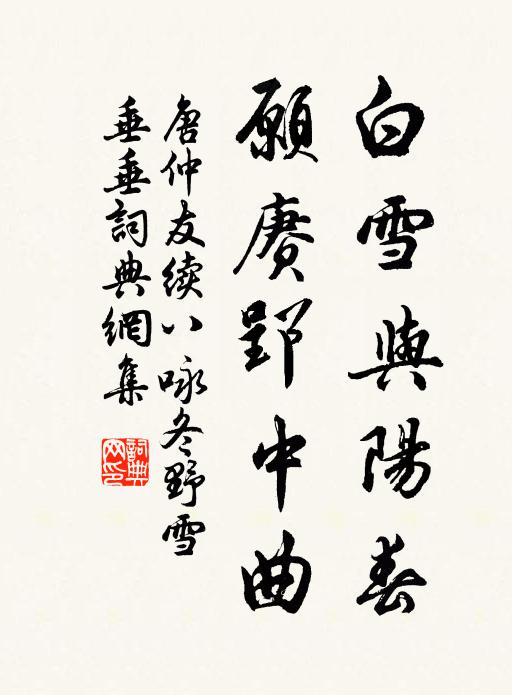 白雪與陽春
願賡郢中曲
唐仲友續八咏冬野雪
垂垂詞典網集
詞典網印